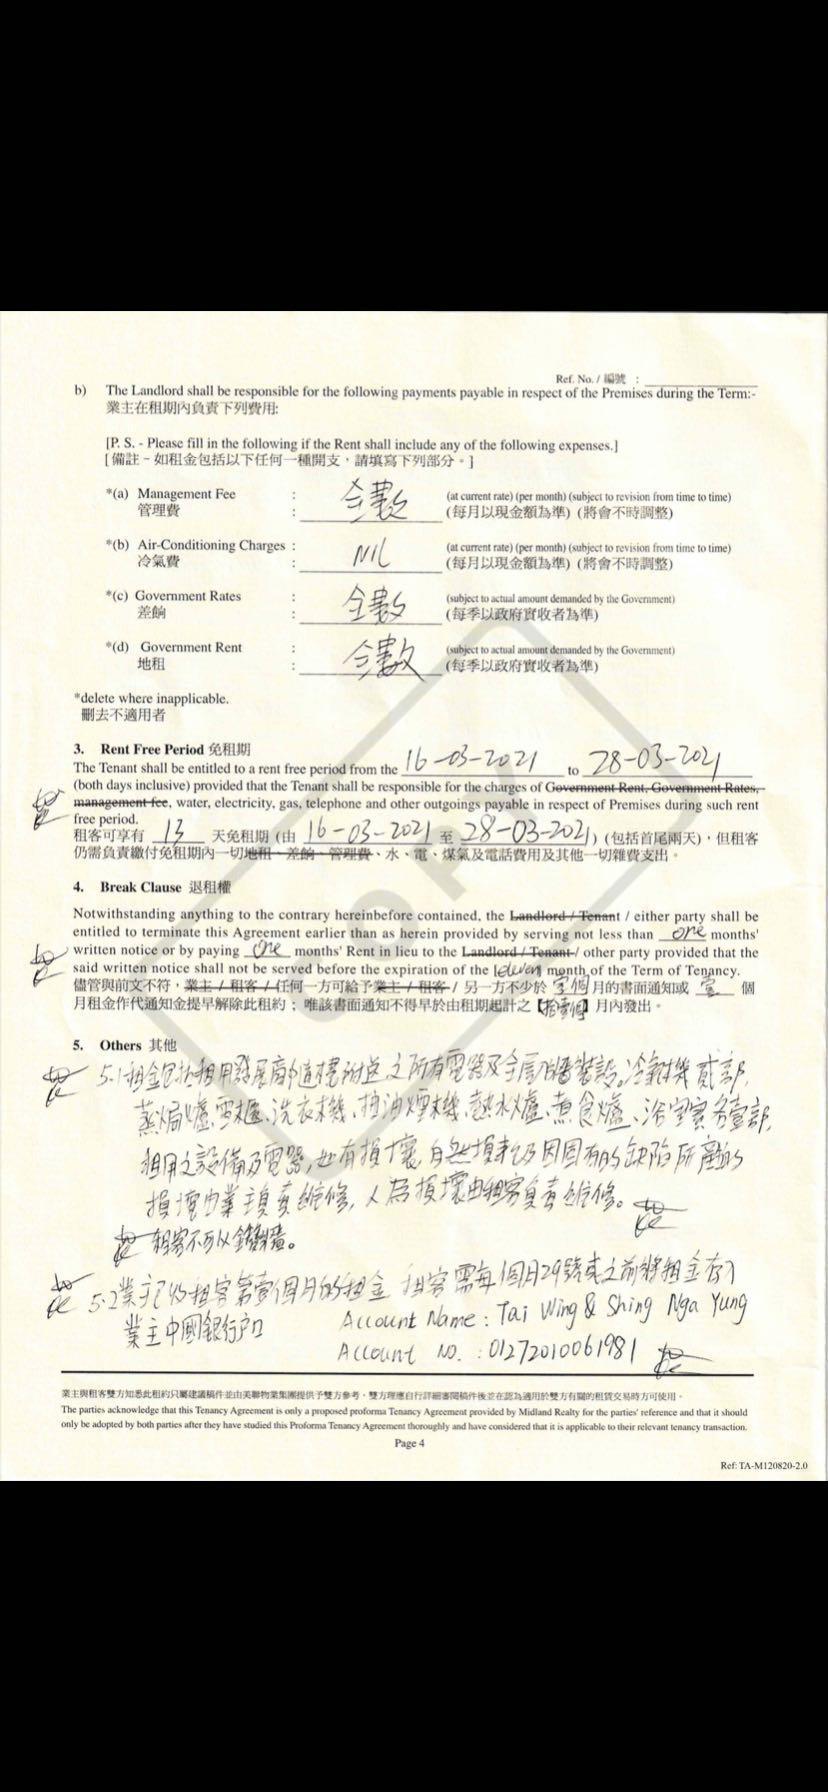 Ref. No. / 編號 :
b) The Landlord shall be responsible for the following payments payable in respect of the Premises during the Term:-
業主在租期內負責下列費用:
[P. S. - Please fill in the following if the Rent shall include any of the following expenses.]
[備註 - 如租金包括以下任何一種開支,請填寫下列部分。]
*(a) Management Fee : 全數 (at current rate) (per month) (subject to revision from time to time)
管理費 : (每月以現金額為準) (將會不時調整)
*(b) Air-Conditioning Charges : NIL (at current rate) (per month) (subject to revision from time to time)
冷氣費 : (每月以現金額為準) (將會不時調整)
*(c) Government Rates : 全數 (subject to actual amount demanded by the Government)
差餉 : (每季以政府實收者為準)
*(d) Government Rent : 全數 (subject to actual amount demanded by the Government)
地租 : (每季以政府實收者為準)
*delete where inapplicable.
刪去不適用者
3. Rent Free Period 免租期
The Tenant shall be entitled to a rent free period from the 16-03-2021 to 28-03-2021
(both days inclusive) provided that the Tenant shall be responsible for the charges of Government Rent, Government Rates,
management fee, water, electricity, gas, telephone and other outgoings payable in respect of Premises during such rent
free period.
租客可享有 13 天免租期 (由 16-03-2021 至 28-03-2021) (包括首尾兩天),但租客
仍需負責繳付免租期內一切地租、差餉、管理費、水、電、煤氣及電話費用及其他一切雜費支出。
4. Break Clause 退租權
Notwithstanding anything to the contrary hereinbefore contained, the Landlord / Tenant / either party shall be
entitled to terminate this Agreement earlier than as herein provided by serving not less than one months'
written notice or by paying one months' Rent in lieu to the Landlord / Tenant / other party provided that the
said written notice shall not be served before the expiration of the eleven month of the Term of Tenancy.
儘管與前文不符,業主 / 租客 / 任何一方可給予業主 / 租客 / 另一方不少於 壹個 月的書面通知或 壹 個
月租金作代通知金提早解除此租約;唯該書面通知不得早於由租期起計之【拾壹個】月內發出。
5. Others 其他
5.1 租金包括租用發展商隨樓附送之所有電器及全屋裝設。冷氣機貳部,
蒸焗爐、雪櫃、洗衣機、抽油煙機、熱水爐、煮食爐、浴室寶各壹部,
租用之設備及電器,如有損壞,自然損耗及因固有的缺陷所產的
損壞由業主負責維修,人為損壞由租客負責維修。
租客不可以鑽牆。
5.2 業主已收租客第壹個月的租金 租客需每個月29號或之前將租金存入
業主中國銀行戶口 Account Name : Tai Wing & Shing Nga Yung
Account No. : 01272010061981
業主與租客雙方知悉此租約只屬建議稿件並由美聯物業集團提供予雙方參考,雙方理應自行詳細審閱稿件後並在認為適用於雙方有關的租賃交易時方可使用。
The parties acknowledge that this Tenancy Agreement is only a proposed proforma Tenancy Agreement provided by Midland Realty for the parties' reference and that it should
only be adopted by both parties after they have studied this Proforma Tenancy Agreement thoroughly and have considered that it is applicable to their relevant tenancy transaction.
Page 4
Ref: TA-M120820-2.0
COPY